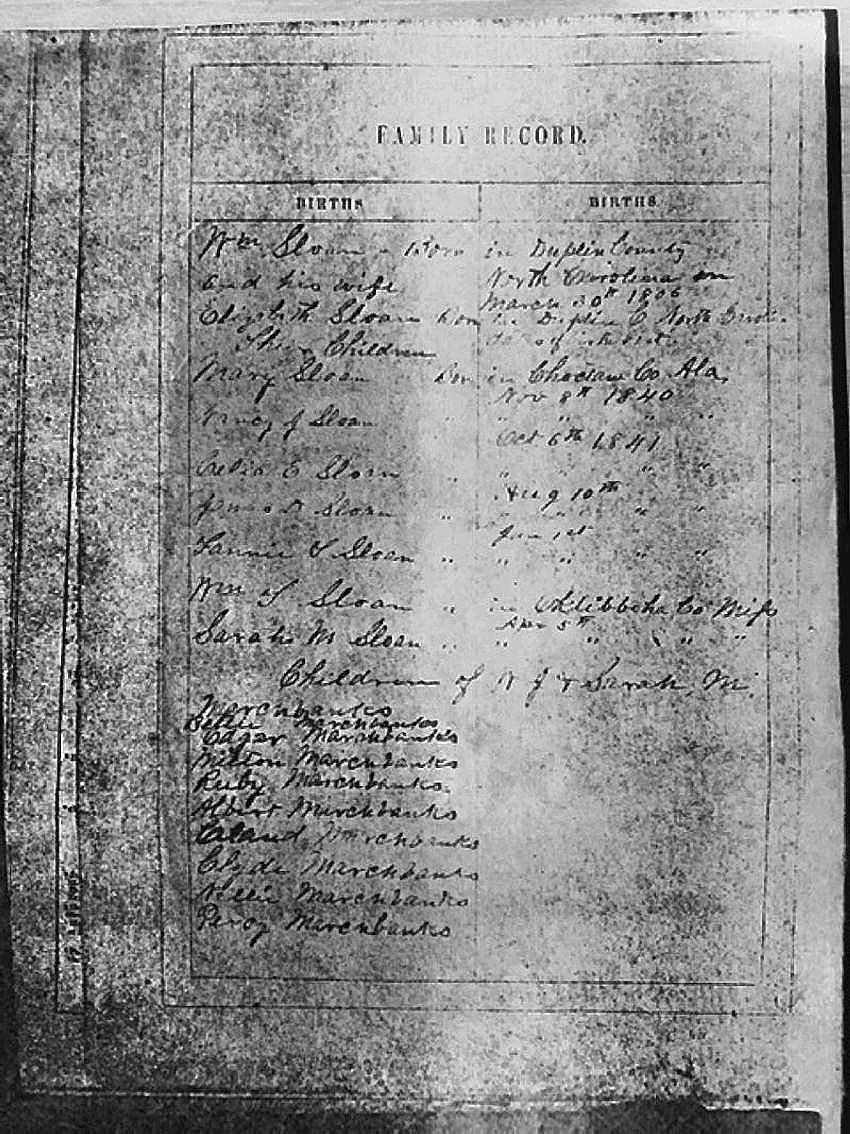 FAMILY RECORD.
BIRTHS
BIRTHS
Wm Sloan Born in Duplin County
and his wife North Carolina on
March 30th 1806
Elizabeth Sloan Born in Duplin C North
Their Children
Mary Sloan Born in Choctaw Co Ala,
Nov 8th 1840
Nancy J Sloan " " " "
Oct 6th 1841
Celia E Sloan " " " "
Aug 10th
Sloan " " "
Jan 1st
Fannie Sloan " " " " "
Wm Sloan " in Oktibbeha Co Miss
Apr 5th
Sarah M Sloan " " " "
Children of & Sarah, M.
Marchbanks
Marchbanks
Edgar Marchbanks
Milton Marchbanks
Ruby Marchbanks.
Albert Marchbanks
Claud Marchbanks
Clyde Marchbanks
Nellie Marchbanks
Percy Marchbanks